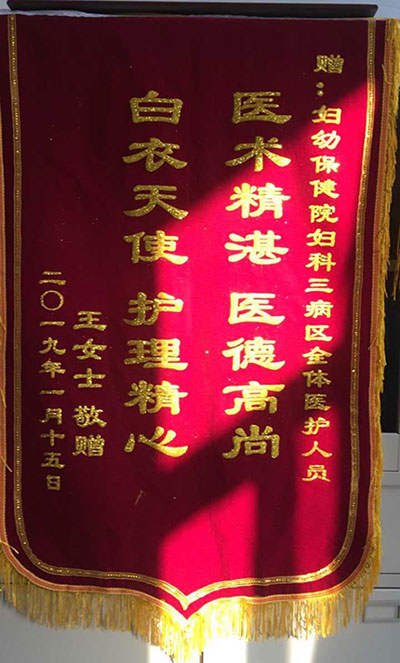 赠：妇幼保健院妇科三病区全体医护人员
医术精湛 医德高尚
白衣天使 护理精心
王女士 敬赠
二〇一九年一月十五日